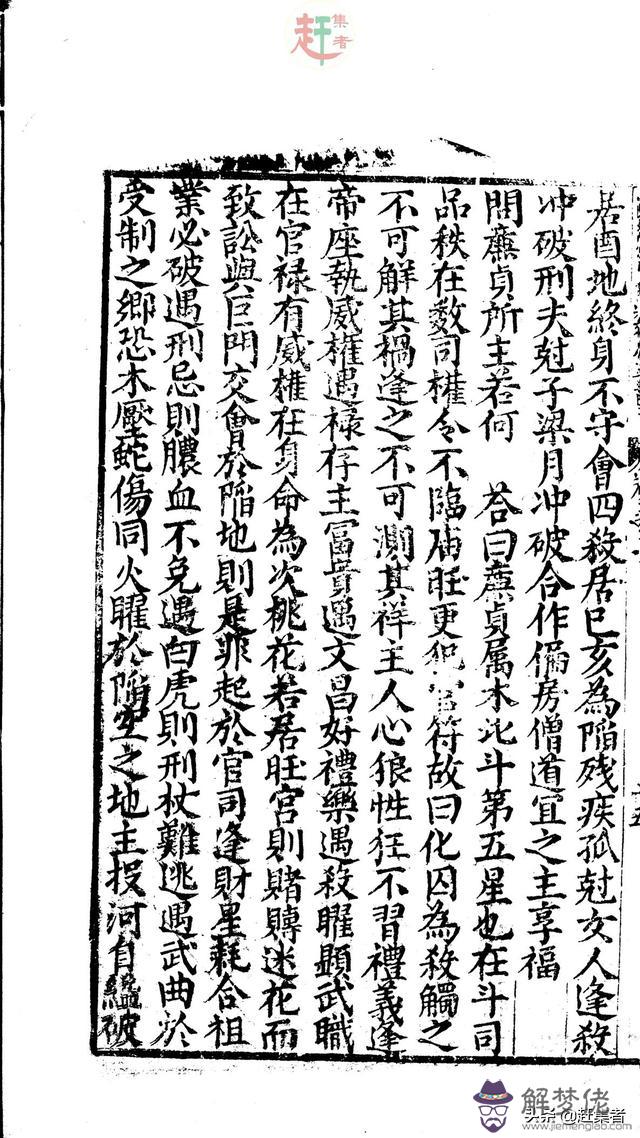 赶集者
居酉地終身不守會四殺居巳亥為陷残疾孤尅女人逢殺
冲破刑夫尅子梁月冲破合作偏房僧道宜之主享福
問廉貞所主若何 荅曰廉貞属木北斗第五星也在斗司
品秩在数司權令不臨庙旺更犯官符故曰化囚為殺觸之
不可解其禍逢之不可測其祥主人心狼性狂不習禮義逢
帝座執威權遇禄存主冨貴遇文昌好禮樂遇殺曜顕武職
在官禄有威權在身命為次桃花若居旺宫則賭賻迷花而
致訟與巨門交會於陷地則是非起於官司逢財星耗合祖
業必破遇刑忌則膿血不免遇白虎則刑杖難逃遇武曲於
受制之鄉恐木壓蛇傷同火曜於陷空之地主投河自縊破
解梦佬
头条@赶集者
www.jiemenglao.com